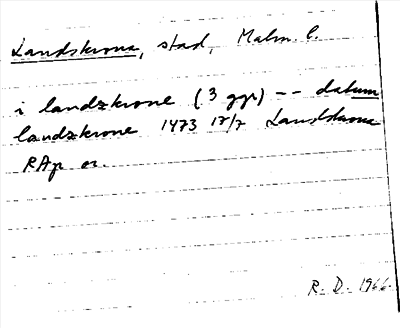 Landskrona, stad, Malm. l.
i landzkrone (3 ggr) -- datum
landzkrone 1473 17/7 Landskrona
RAp or.
R. D. 1966.